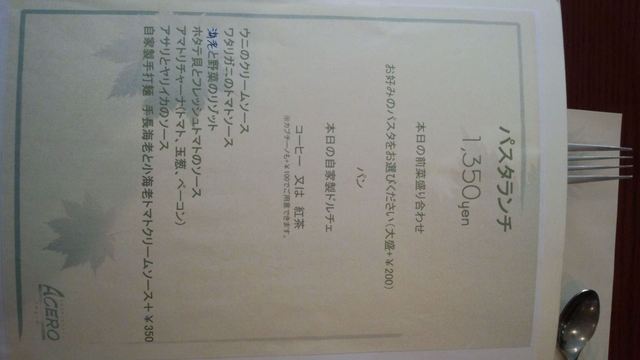 パスタランチ
1,350yen
本日の前菜盛り合わせ
お好みのパスタをお選びください(大盛+¥200)
パン
本日の自家製ドルチェ
コーヒー 又は 紅茶
※カプチーノも+¥100でご用意できます。
ウニのクリームソース
ワタリガニのトマトソース
海老と野菜のリゾット
ホタテ貝とフレッシュトマトのソース
アマトリチャーナ(トマト、玉葱、ベーコン)
アサリとヤリイカのソース
自家製手打麺 手長海老と小海老トマトクリームソース+¥350
ACERO